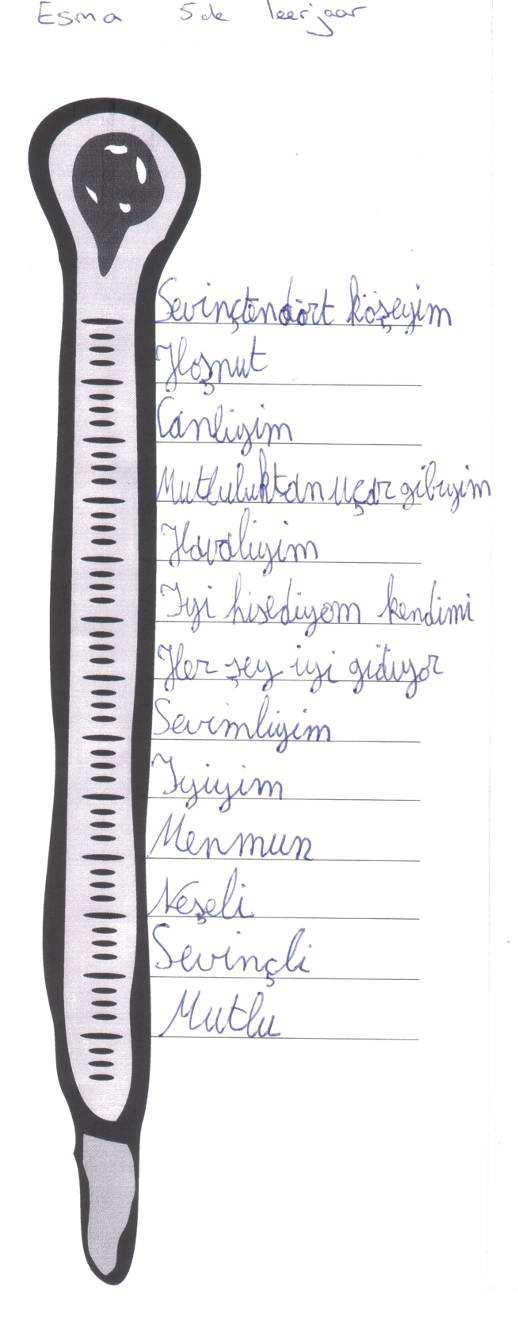 Esma 5de leerjaar
Sevinçtendört köşeyim
Hoşnut
Canliyim
Mutluluktan uçar gibiyim
Havaliyim
Iyi hisediyom kendimi
Her şey iyi gidiyor
Sevimliyim
Iyiyim
Menmun
Neşeli
Sevinçli
Mutlu